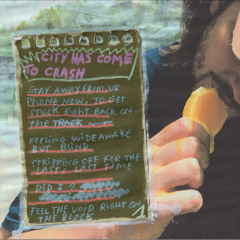 CITY HAS COME
TO CRASH
STAY AWAY FROM UR
PHONE NOW, TO GET
STUCK RIGHT BACK ON
THE TRACK
FEELING WIDE AWAKE
BUT BLIND
STRIPPING OFF FOR THE
LAST, LAST TIME
DID I
FEEL THE VOID RIGHT ON
THE BLOCK